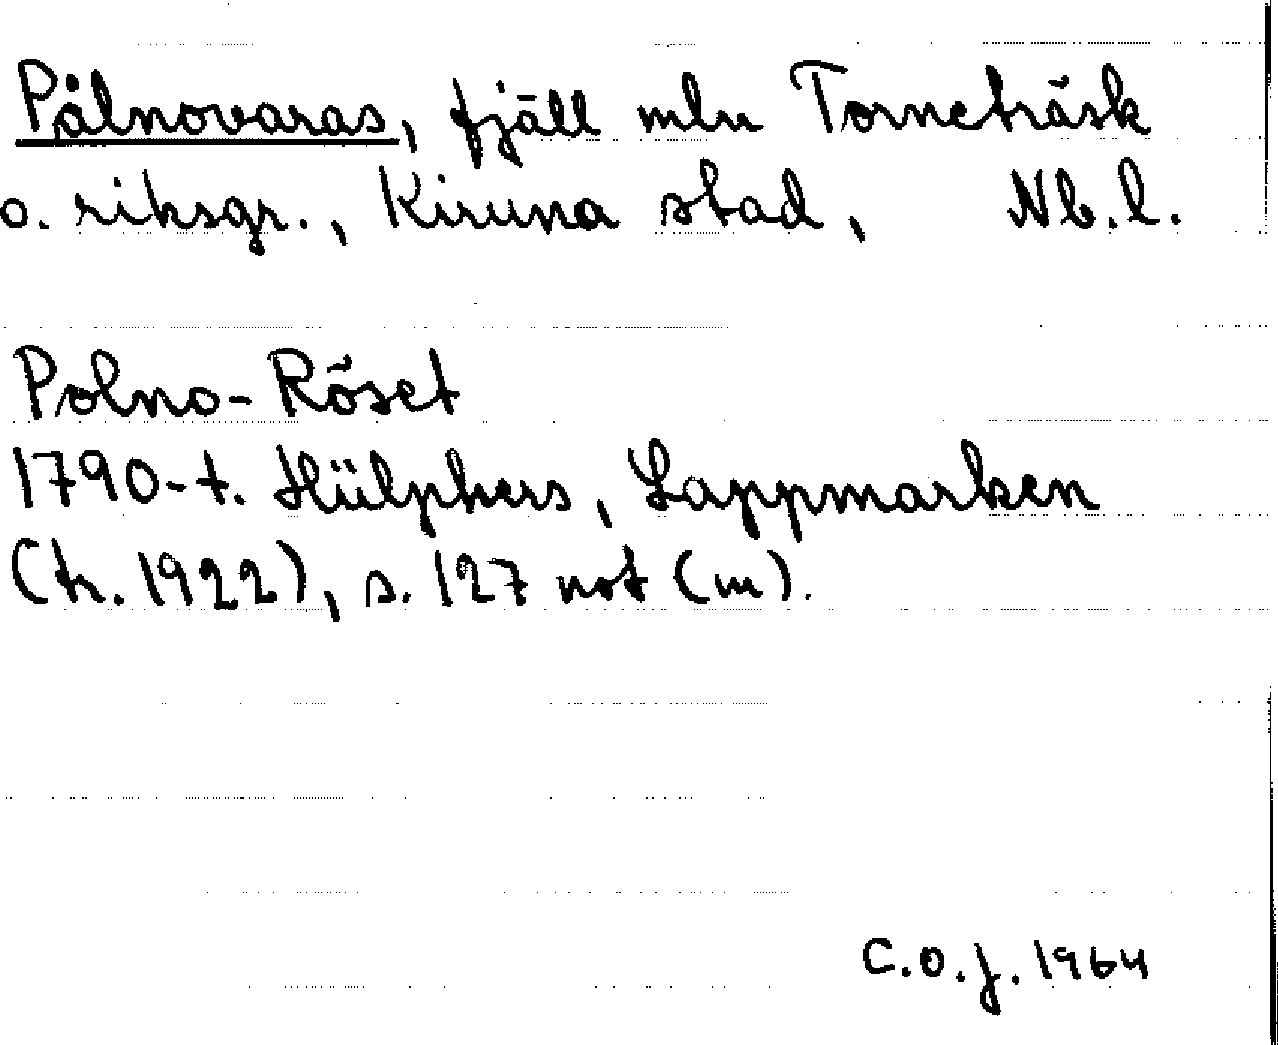 Pålnovaras, fjäll mln Torneträsk
o. riksgr., Kiruna stad, Nb.l.
Polno-Röset
1790-t. Hülphers, Lappmarken
(tr. 1922), s. 127 not (m).
C.O.J. 1964